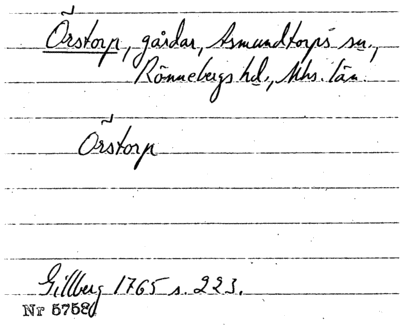 Örstorp, gårdar, Asmundtorps sn.,
Rönnebergs hd., Mhs. län.
Örstorp
Gillberg 1765 s. 223.
Nr 5758d